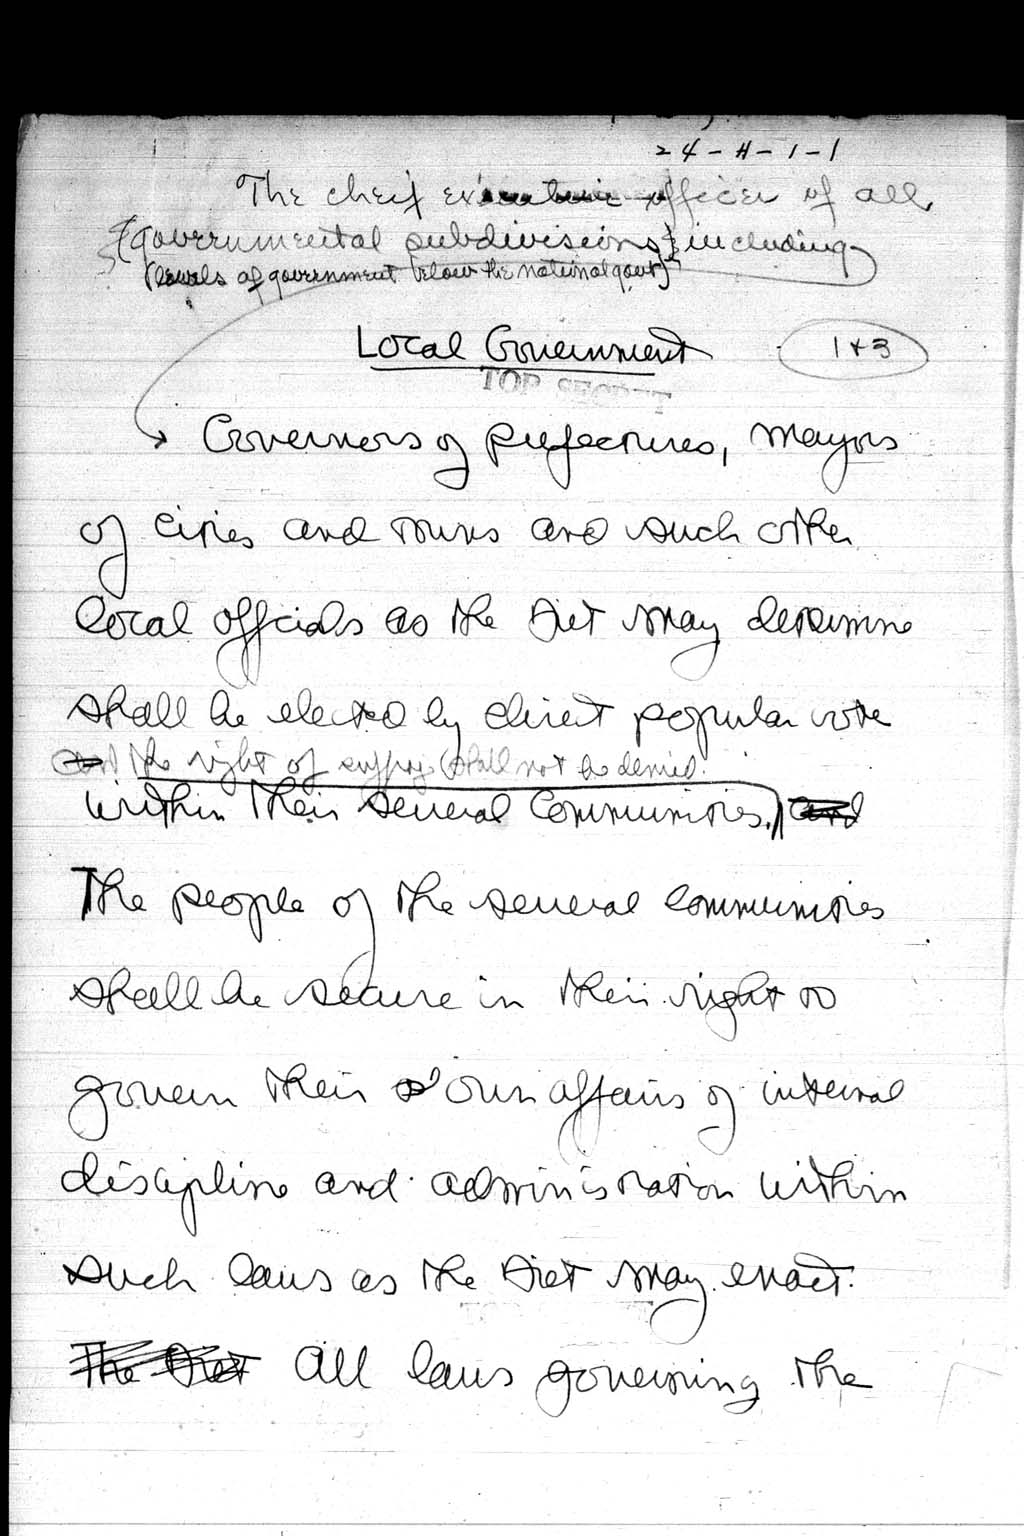 24-H-1-1
The cheif executive officer of all
{governmental subdivisions} including
(levels of government below the national govt)
Local Government
1+3
TOP SECRET
Governors of prefectures, mayors
of cities and towns and such other
local officials as the Diet may determine
shall be elected by direct popular vote
and the right of suffrage shall not be denied.
within their several communities. and
The people of the several communities
shall be secure in their right to
govern their own affairs of internal
discipline and administration within
such laws as the Diet may enact.
The Diet All laws governing the